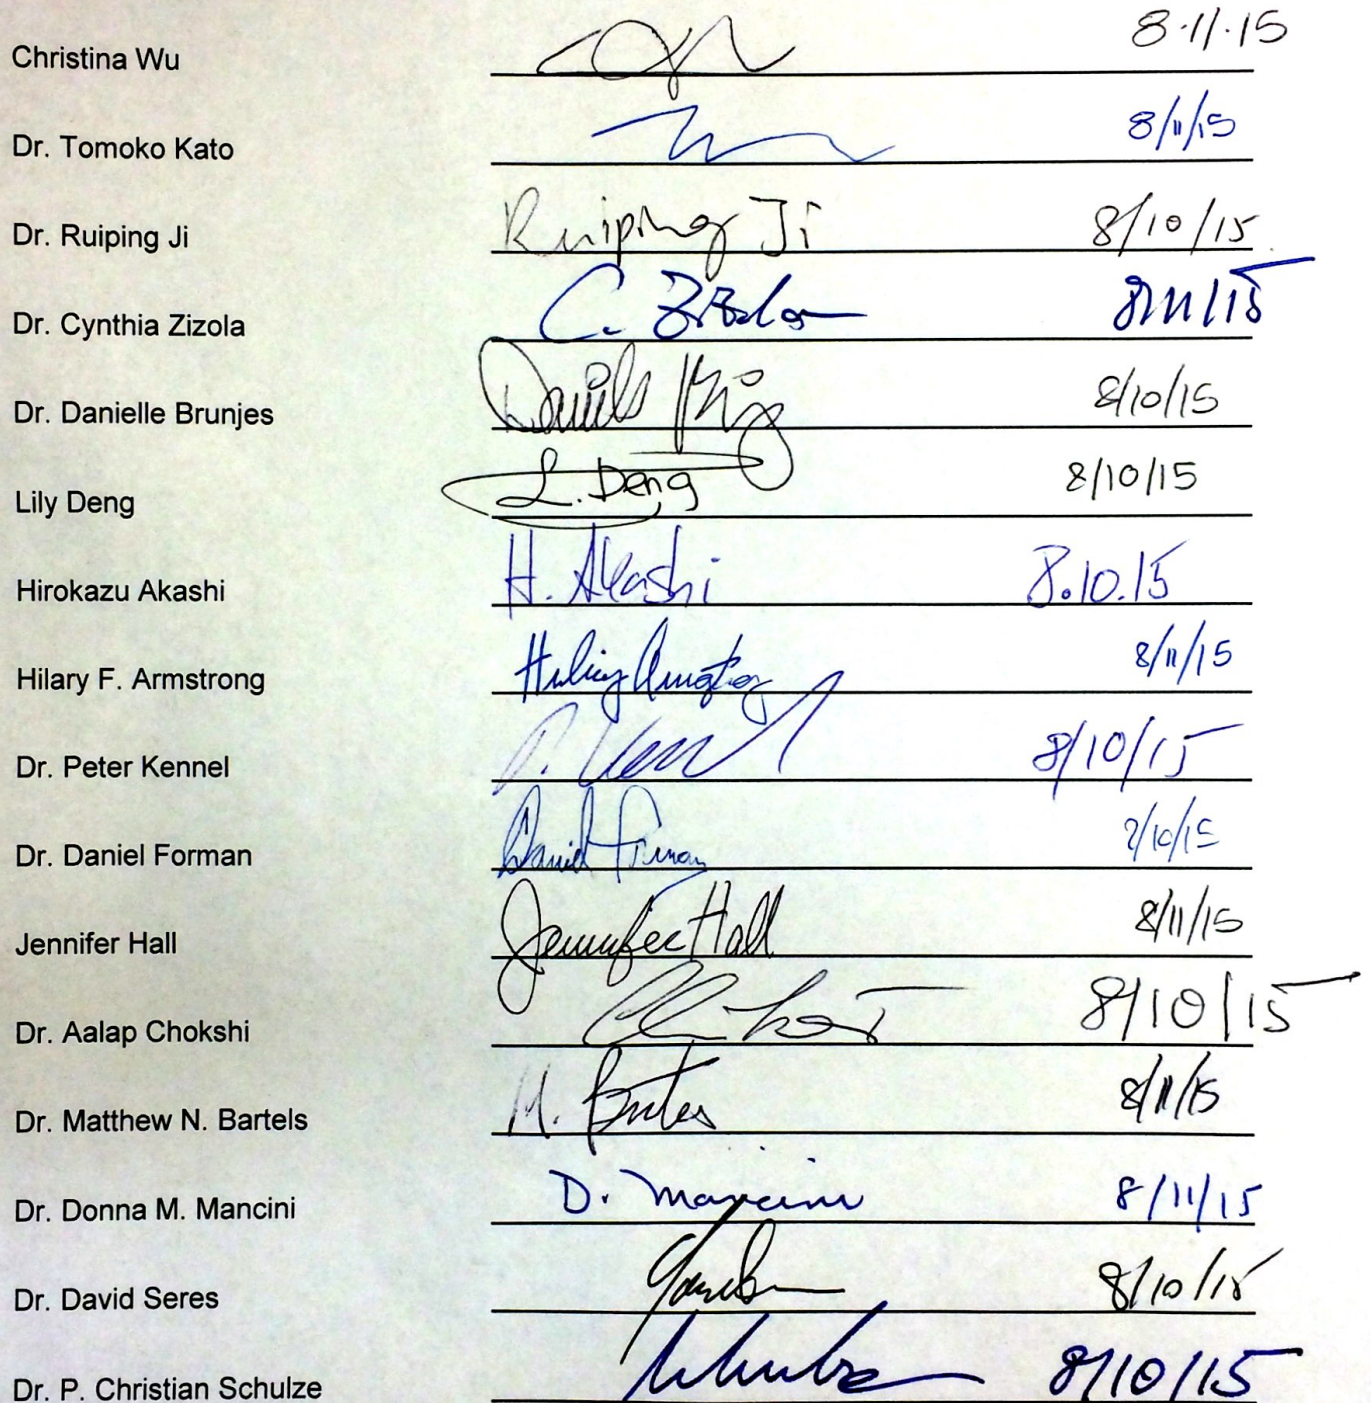 Christina Wu 8.11.15
Dr. Tomoko Kato 8/11/15
Dr. Ruiping Ji Ruiping Ji 8/10/15
Dr. Cynthia Zizola C. Zizola 8/11/15
Dr. Danielle Brunjes Danielle 8/10/15
Lily Deng L. Deng 8/10/15
Hirokazu Akashi H. Akashi 8.10.15
Hilary F. Armstrong Hilary Armstrong 8/11/15
Dr. Peter Kennel 8/10/15
Dr. Daniel Forman Daniel Forman 8/10/15
Jennifer Hall Jennifer Hall 8/11/15
Dr. Aalap Chokshi 8/10/15
Dr. Matthew N. Bartels M. Bartels 8/11/15
Dr. Donna M. Mancini D. Mancini 8/11/15
Dr. David Seres 8/10/15
Dr. P. Christian Schulze Schulze 8/10/15